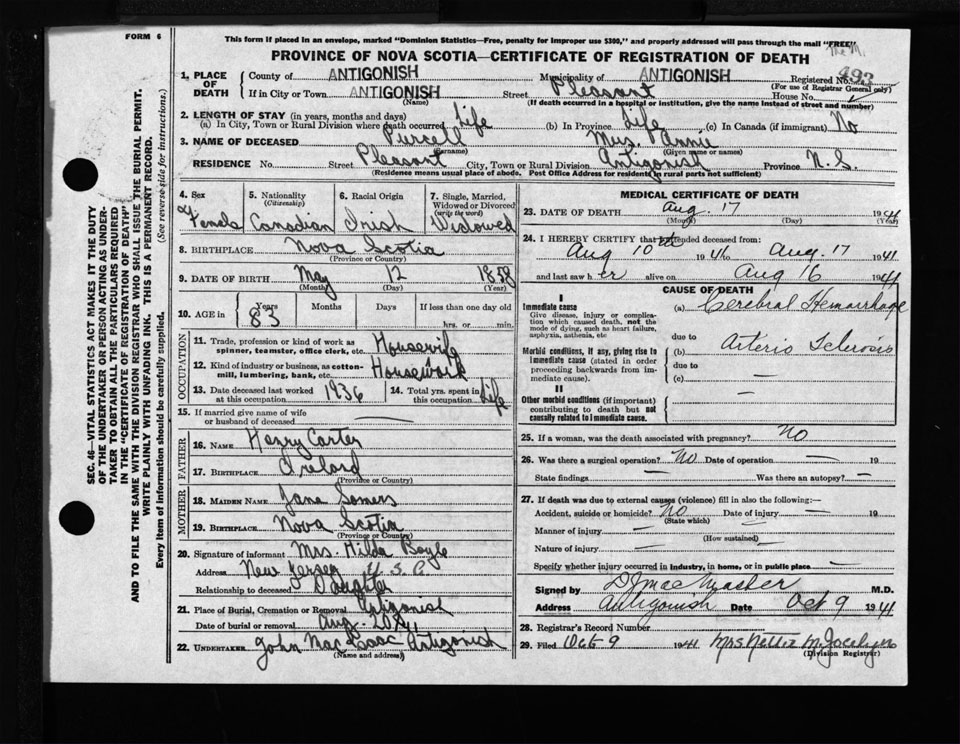 FORM 6
This form if placed in an envelope, marked "Dominion Statistics—Free, penalty for improper use $300," and properly addressed will pass through the mail "FREE"
PROVINCE OF NOVA SCOTIA—CERTIFICATE OF REGISTRATION OF DEATH
1. PLACE OF DEATH County of ANTIGONISH Municipality of ANTIGONISH Registered No. 493
(For use of Registrar General only)
If in City or Town ANTIGONISH Street Pleasant House No.
(Name) (If death occurred in a hospital or institution, give the name instead of street and number)
2. LENGTH OF STAY (in years, months and days)
(a) In City, Town or Rural Division where death occurred Life (b) In Province Life (c) In Canada (if immigrant) No
3. NAME OF DECEASED Purcell Mrs. Annie
(Surname) (Given name or names)
RESIDENCE No. Street Pleasant City, Town or Rural Division Antigonish Province N.S.
(Residence means usual place of abode. Post Office Address for residents in rural parts not sufficient)
4. Sex 5. Nationality (Citizenship) 6. Racial Origin 7. Single, Married, Widowed or Divorced (write the word)
Female Canadian Irish Widowed
8. BIRTHPLACE Nova Scotia
(Province or Country)
9. DATE OF BIRTH May 12 1858
(Month) (Day) (Year)
10. AGE in Years Months Days If less than one day old
83 hrs. or min.
OCCUPATION
11. Trade, profession or kind of work as spinner, teamster, office clerk, etc. Housewife
12. Kind of industry or business, as cotton-mill, lumbering, bank, etc. Housework
13. Date deceased last worked at this occupation 1936 14. Total yrs. spent in this occupation Life
15. If married give name of wife or husband of deceased —
FATHER
16. NAME Henry Carter
17. BIRTHPLACE Ireland
(Province or Country)
MOTHER
18. MAIDEN NAME Jane Somers
19. BIRTHPLACE Nova Scotia
(Province or Country)
20. Signature of informant Mrs. Hilda Boyle
Address New Jersey U.S.A.
Relationship to deceased Daughter
21. Place of Burial, Cremation or Removal Antigonish
Date of burial or removal Aug. 20/41
22. UNDERTAKER John MacIsaac Antigonish
(Name and address)
MEDICAL CERTIFICATE OF DEATH
23. DATE OF DEATH Aug. 17 1941
(Month) (Day) (Year)
24. I HEREBY CERTIFY that I attended deceased from:
Aug 10 1941 to Aug. 17 1941
and last saw her alive on Aug 16 1941
CAUSE OF DEATH
I
Immediate cause
Give disease, injury or complication which caused death, not the mode of dying, such as heart failure, asphyxia, asthenia, etc
(a) Cerebral Hemorrhage
due to
Morbid conditions, if any, giving rise to immediate cause (stated in order proceeding backwards from immediate cause).
(b) Arterio Sclerosis
due to
(c) —
II
Other morbid conditions (if important) contributing to death but not causally related to immediate cause.
—
25. If a woman, was the death associated with pregnancy? No
26. Was there a surgical operation? No Date of operation — 19
State findings — Was there an autopsy? —
27. If death was due to external causes (violence) fill in also the following:—
Accident, suicide or homicide? No Date of injury — 19
(State which)
Manner of injury —
(How sustained)
Nature of injury —
Specify whether injury occurred in industry, in home, or in public place —
Signed by D. J. MacMaster M.D.
Address Antigonish Date Oct 9 1941
28. Registrar's Record Number
29. Filed Oct 9 1941 Mrs Nellie M. Jocelyn
(Division Registrar)
SEC. 46—VITAL STATISTICS ACT MAKES IT THE DUTY
OF THE UNDERTAKER OR PERSON ACTING AS UNDER-
TAKER TO OBTAIN ALL THE PARTICULARS REQUIRED
IN THE "CERTIFICATE OF REGISTRATION OF DEATH"
AND TO FILE THE SAME WITH THE DIVISION REGISTRAR WHO SHALL ISSUE THE BURIAL PERMIT.
WRITE PLAINLY WITH UNFADING INK. THIS IS A PERMANENT RECORD.
Every item of information should be carefully supplied. (See reverse side for instructions.)